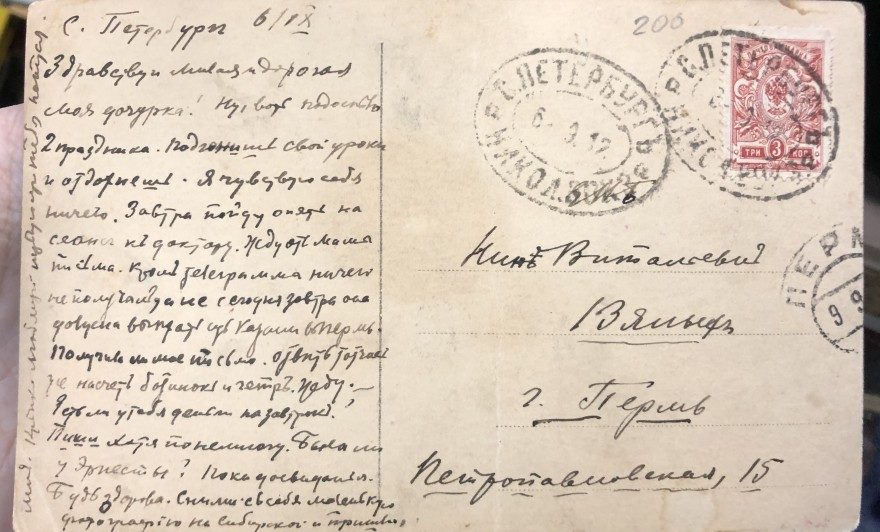 С. Петербургъ 6/IX
Здравствуй милая и дорогая
моя дочурка! Ну, вотъ подоспѣло
2 праздника. Подгонишь свои уроки
и отдохнешь. Я чувствую себя
ничего. Завтра пойду опять на
сеансъ къ доктору. Жду отъ мамы
письма. Кромѣ телеграмма ничего
не получалъ да не сегодня завтра она
должна выѣхать изъ Казани въ Пермь.
Получила ли мое письмо. Отвѣть тотчасъ
же насчетъ ботинокъ и Жду.
Есть ли у тебя деньги на завтраки?
Пиши хотя понемногу. Была ли
у Эрнесты? Пока досвиданья.
Будь здорова. Сними съ себя маленькую
фотографію на Сибирской и пришли
мнѣ. Крѣпко тебя папуся.
200
С.ПЕТЕРБУРГЪ
НИКОЛ. ВОКЗ.
6. 9. 12
С.ПЕТЕРБУРГЪ
ТРИ 3 КОП
ПЕРМ
9 9
Нинѣ Витальевнѣ
Вяльцъ
г. Пермь
Петропавловская, 15